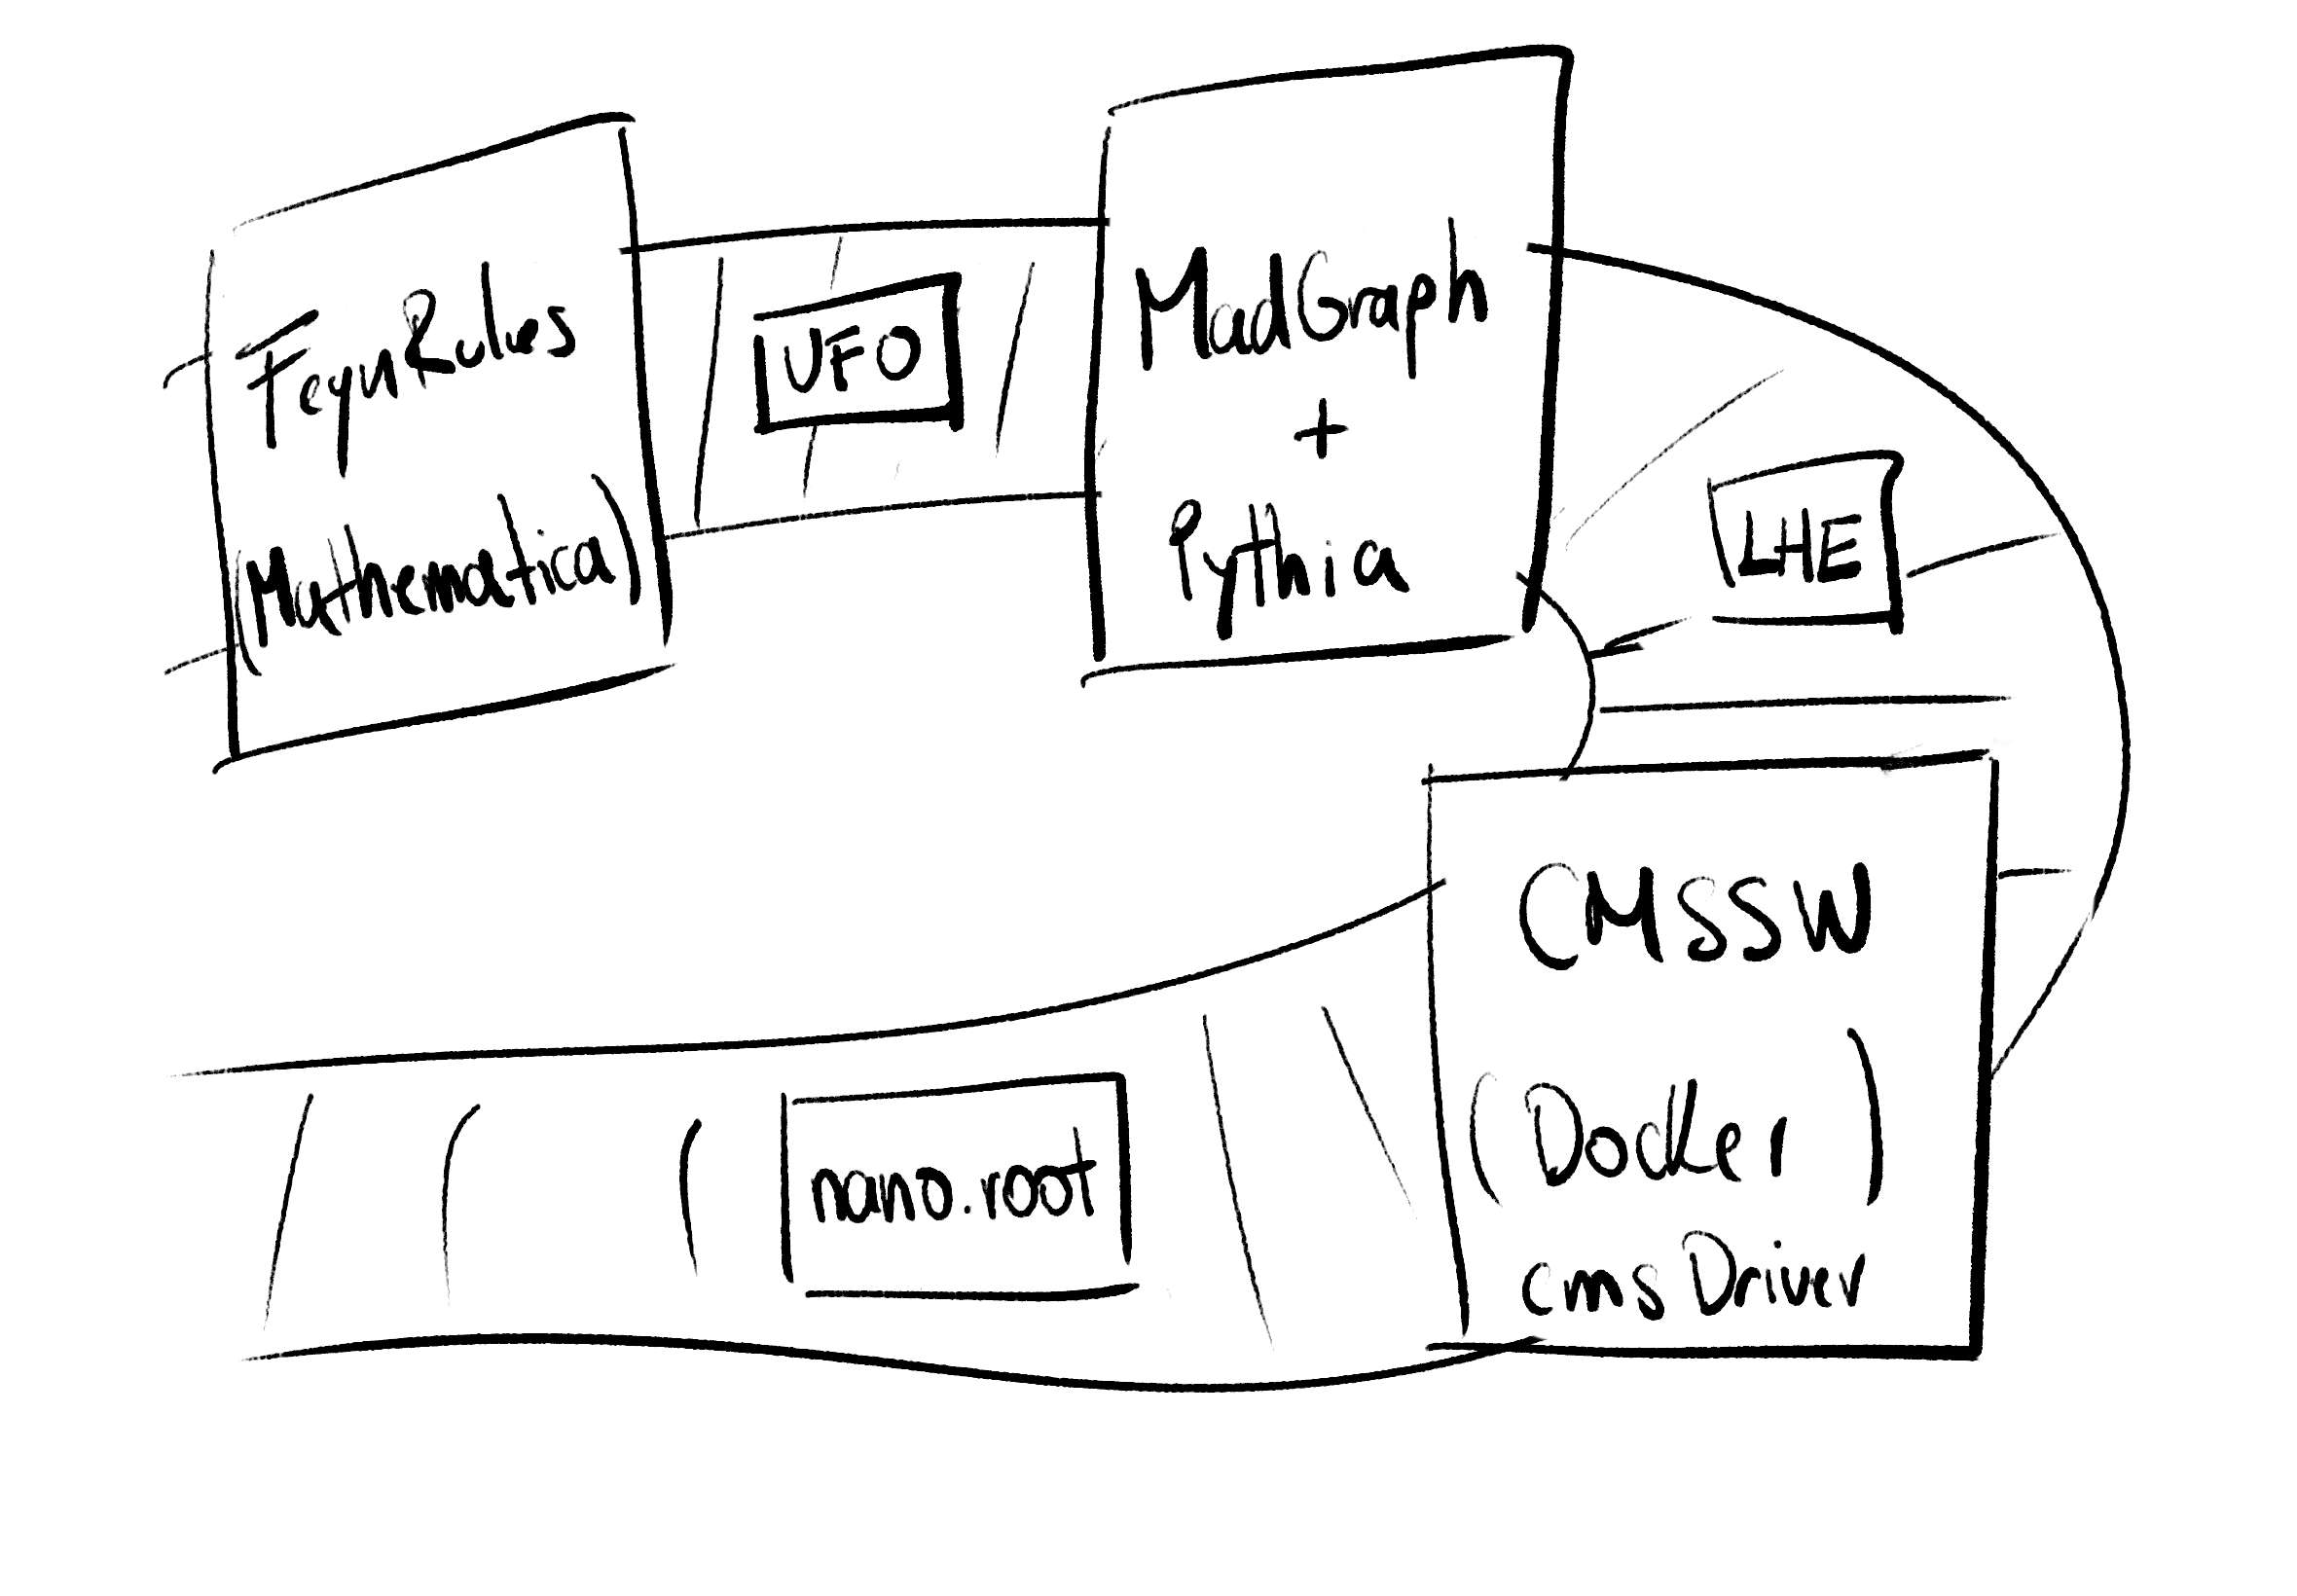 FeynRules
(Mathematica)
UFO
MadGraph
+
Pythia
LHE
CMSSW
(Docker)
cmsDriver
nano.root